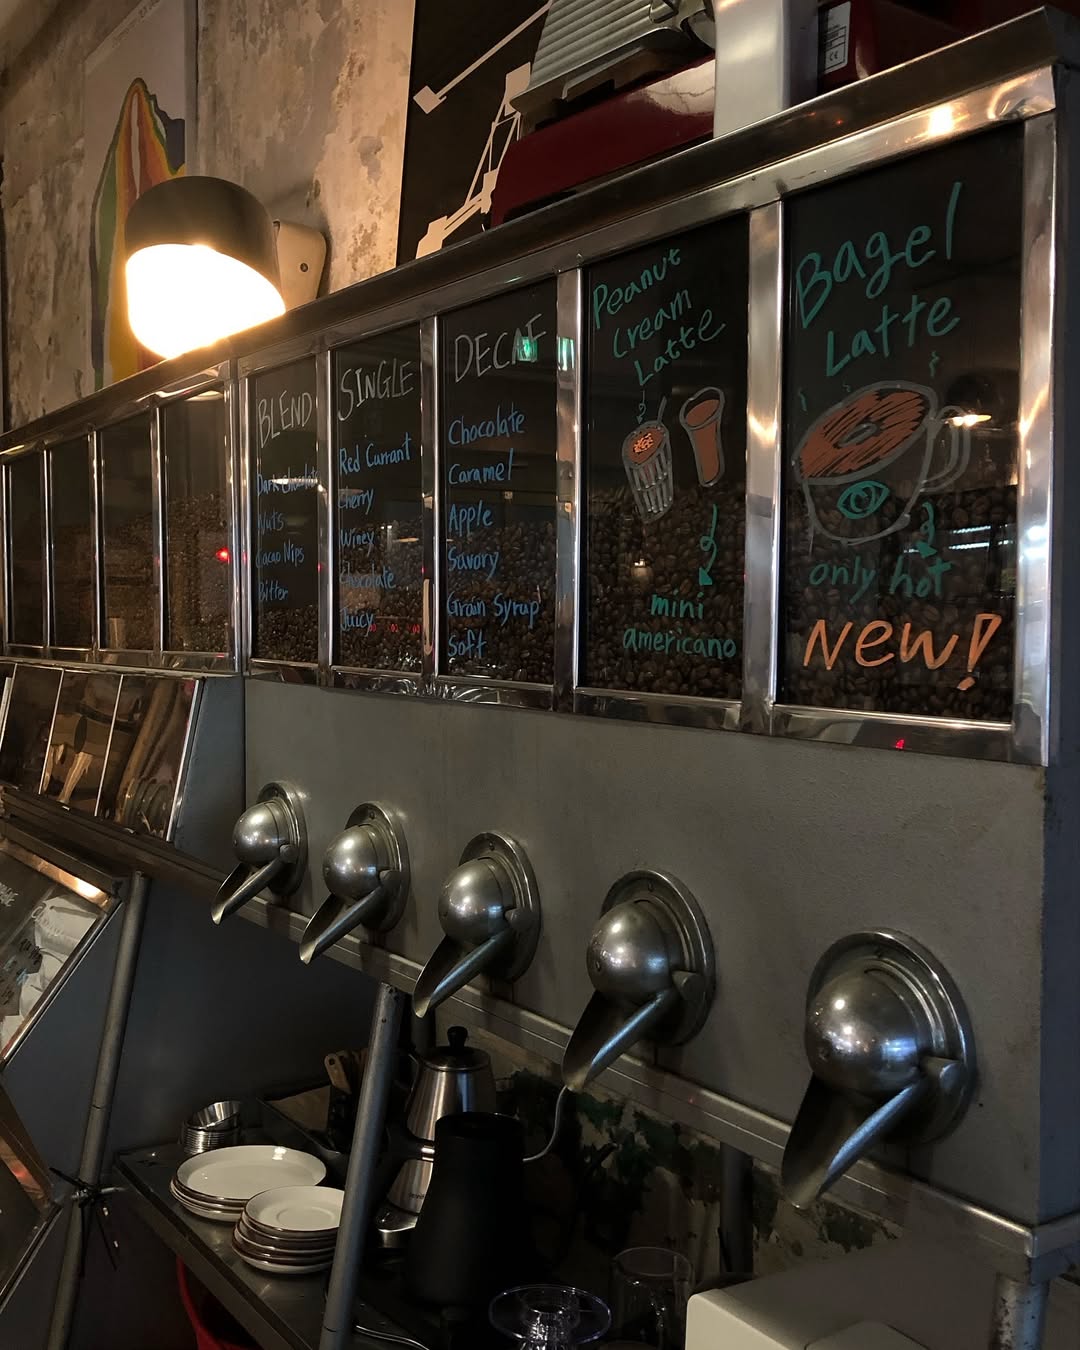 BLEND
Dark Chocolate
Nuts
Cacao Nips
Bitter
SINGLE
Red Currant
Cherry
Winey
Chocolate
Juicy
DECAF
Chocolate
Caramel
Apple
Savory
Grain Syrup
Soft
Peanut
Cream
Latte
mini
americano
Bagel
Latte
only hot
New!